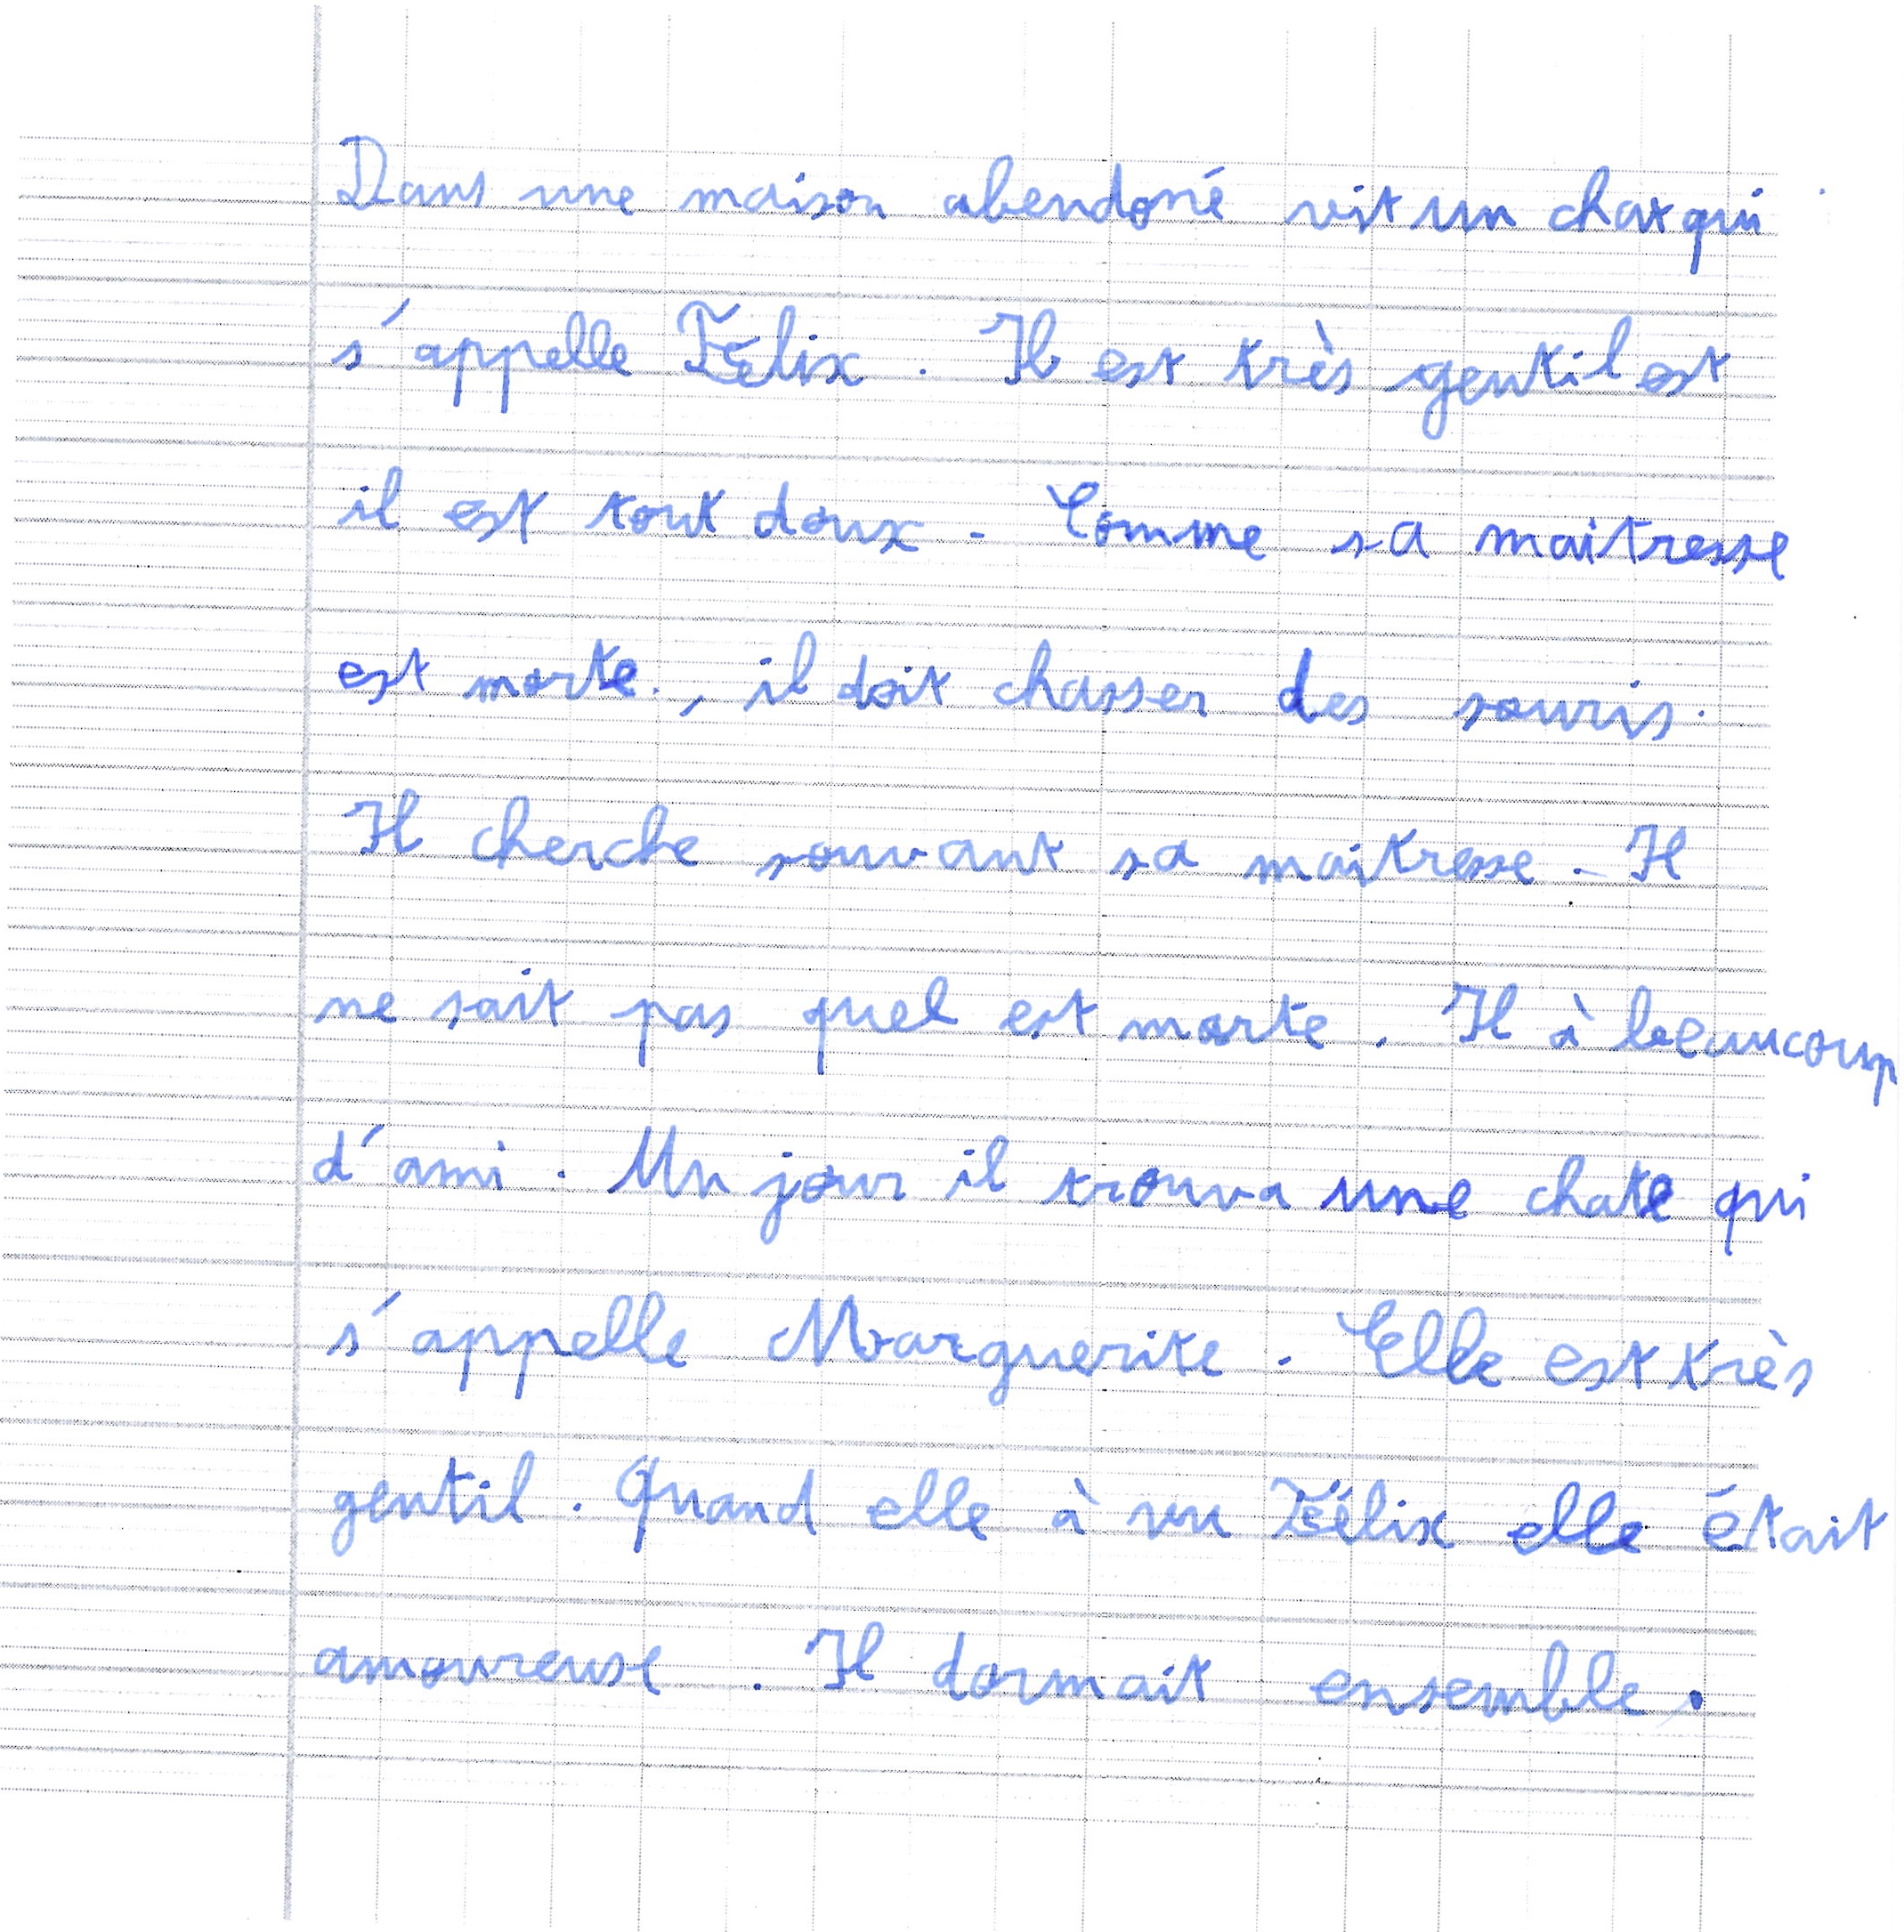 Dans une maison abendoné vit un chat qui
s'appelle Félix. Il est très gentil est
il est tout doux. Comme sa maitresse
est morte, il doit chasser des souris.
Il cherche souvant sa maitresse. Il
ne sait pas quel est morte. Il à beaucoup
d'ami. Un jour il trouva une chate qui
s'appelle Marguerite. Elle est très
gentil. Quand elle à vu Félix elle était
amoureuse. Il dormait ensemble.